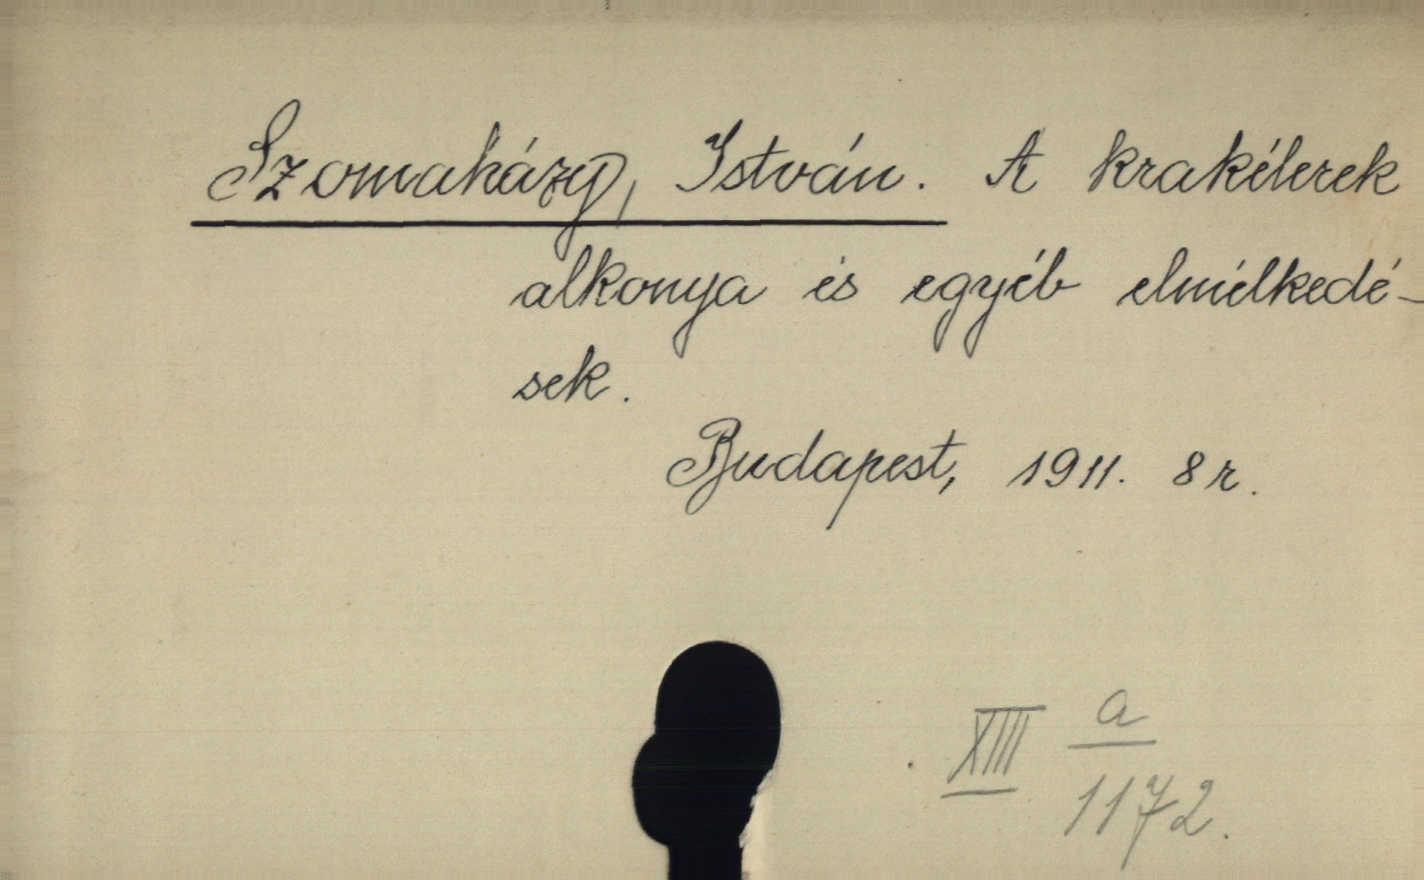 Szomaházy, István. A krakélerek
alkonya és egyéb elmélkedé-
sek.
Budapest, 1911. 8r.
XIII a
1172.